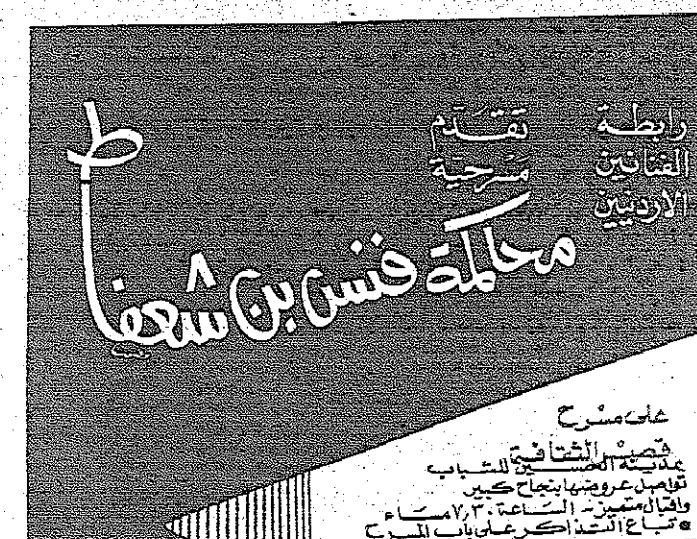 رابطة
الفنانين
الاردنيين
تقدم
مسرحية
محاكمة فنس بن شعفاط
على مسرح
قصر الثقافة
بمدينة الحسين للشباب
تواصل عروضها بنجاح كبير
واقبال متميز الساعة ٧,٣٠ مساء
• تباع التذاكر على باب المسرح